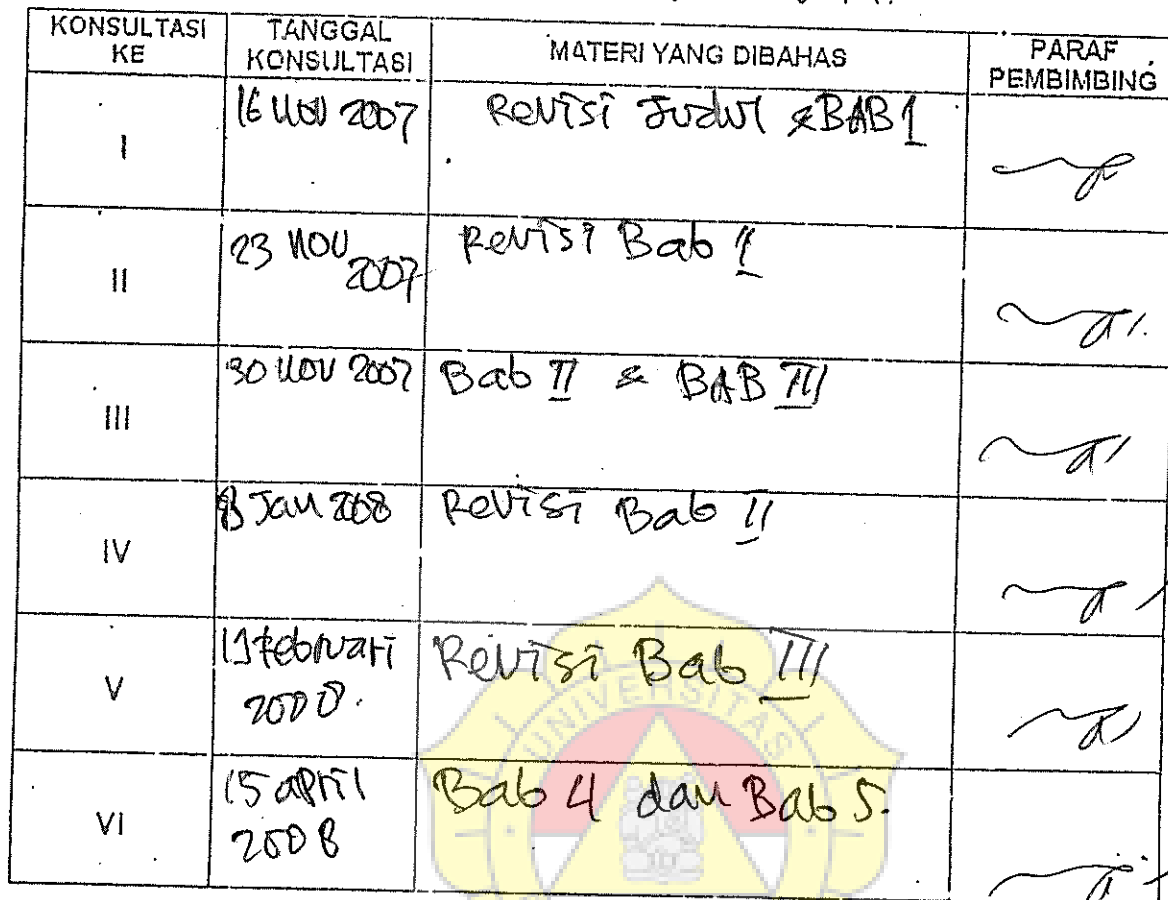 KONSULTASI KE TANGGAL KONSULTASI MATERI YANG DIBAHAS PARAF PEMBIMBING
I 16 Nov 2007 Revisi Judul & BAB 1
II 23 Nov 2007 Revisi Bab 1
III 30 Nov 2007 Bab II & BAB III
IV 8 Jan 2008 Revisi Bab II
V februari 2008. Revisi Bab III
VI 15 april 2008 Bab 4 dan Bab 5.
UNIVERSITAS